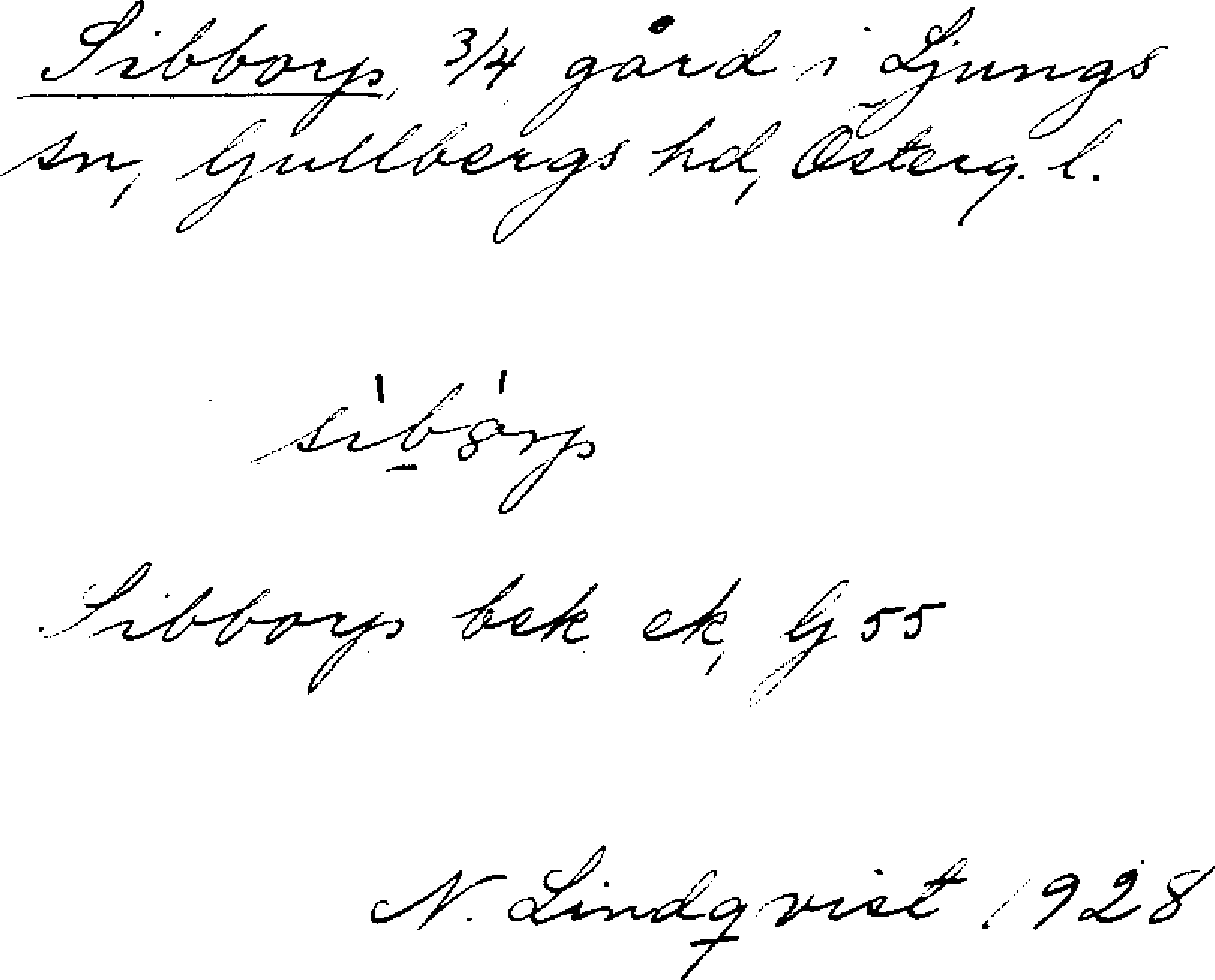 Sibborp, 3/4 gård i Ljungs
sn, Gullbergs hd, Österg. l.
Sibborp bek ek, G 55
N. Lindqvist 1928